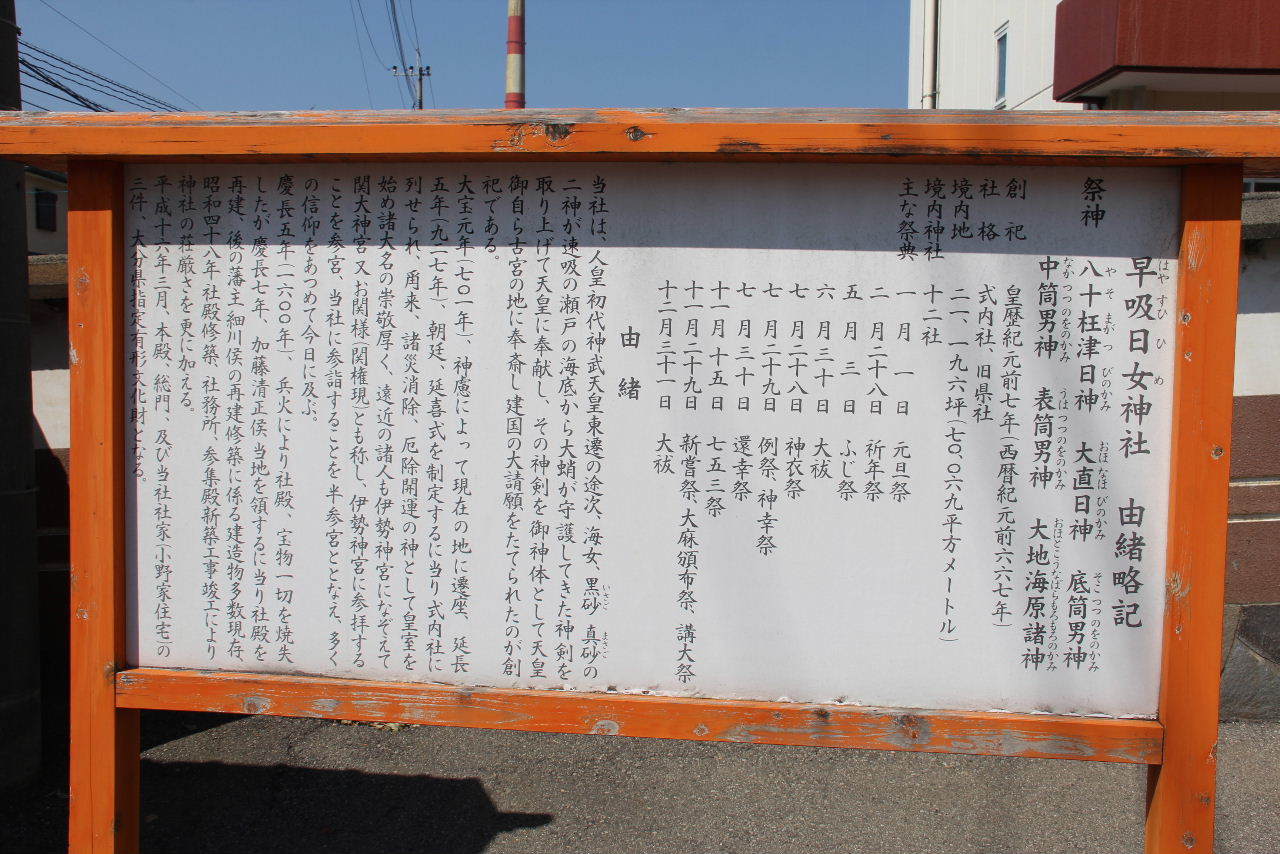 早吸日女神社　由緒略記
はやすひひめ
祭神　八十枉津日神　大直日神　底筒男神
やそまがつびのかみ　おほなほびのかみ　そこつつのをのかみ
中筒男神　表筒男神　大地海原諸神
なかつつのをのかみ　うはつつのをのかみ　おほとこうなばらもろもろのかみ
創祀　皇歴紀元前七年(西暦紀元前六六七年)
社格　式内社、旧県社
境内地　二一、一九六坪(七〇、〇六九平方メートル)
境内神社　十二社
主な祭典　一月一日　元旦祭
二月二十八日　祈年祭
五月三日　ふじ祭
六月三十日　大祓
七月二十八日　神衣祭
七月二十九日　例祭、神幸祭
七月三十日　還幸祭
十一月十五日　七五三祭
十一月二十九日　新嘗祭、大麻頒布祭、講大祭
十二月三十一日　大祓
由緒
当社は、人皇初代神武天皇東遷の途次、海女、黒砂　真砂の
いさご　まさご
二神が速吸の瀬戸の海底から大蛸が守護してきた神剣を
取り上げて天皇に奉献し、その神剣を御神体として天皇
御自ら古宮の地に奉斎し建国の大請願をたてられたのが創
祀である。
大宝元年(七〇一年)、神慮によって現在の地に遷座、延長
五年(九二七年)、朝廷、延喜式を制定するに当り式内社に
列せられ、爾来、諸災消除、厄除開運の神として皇室を
始め諸大名の崇敬厚く、遠近の諸人も伊勢神宮になぞえて
関大神宮又お関様(関権現)とも称し、伊勢神宮に参拝する
ことを参宮、当社に参詣することを半参宮ととなえ、多く
の信仰をあつめて今日に及ぶ。
慶長五年(一六〇〇年)、兵火により社殿、宝物一切を焼失
したが慶長七年、加藤清正侯当地を領するに当り社殿を
再建、後の藩主細川侯の再建修築に係る建造物多数現存、
昭和四十八年社殿修築、社務所、参集殿新築工事竣工により
神社の荘厳さを更に加える。
平成十六年三月、本殿、総門、及び当社社家(小野家住宅)の
三件、大分県指定有形文化財となる。